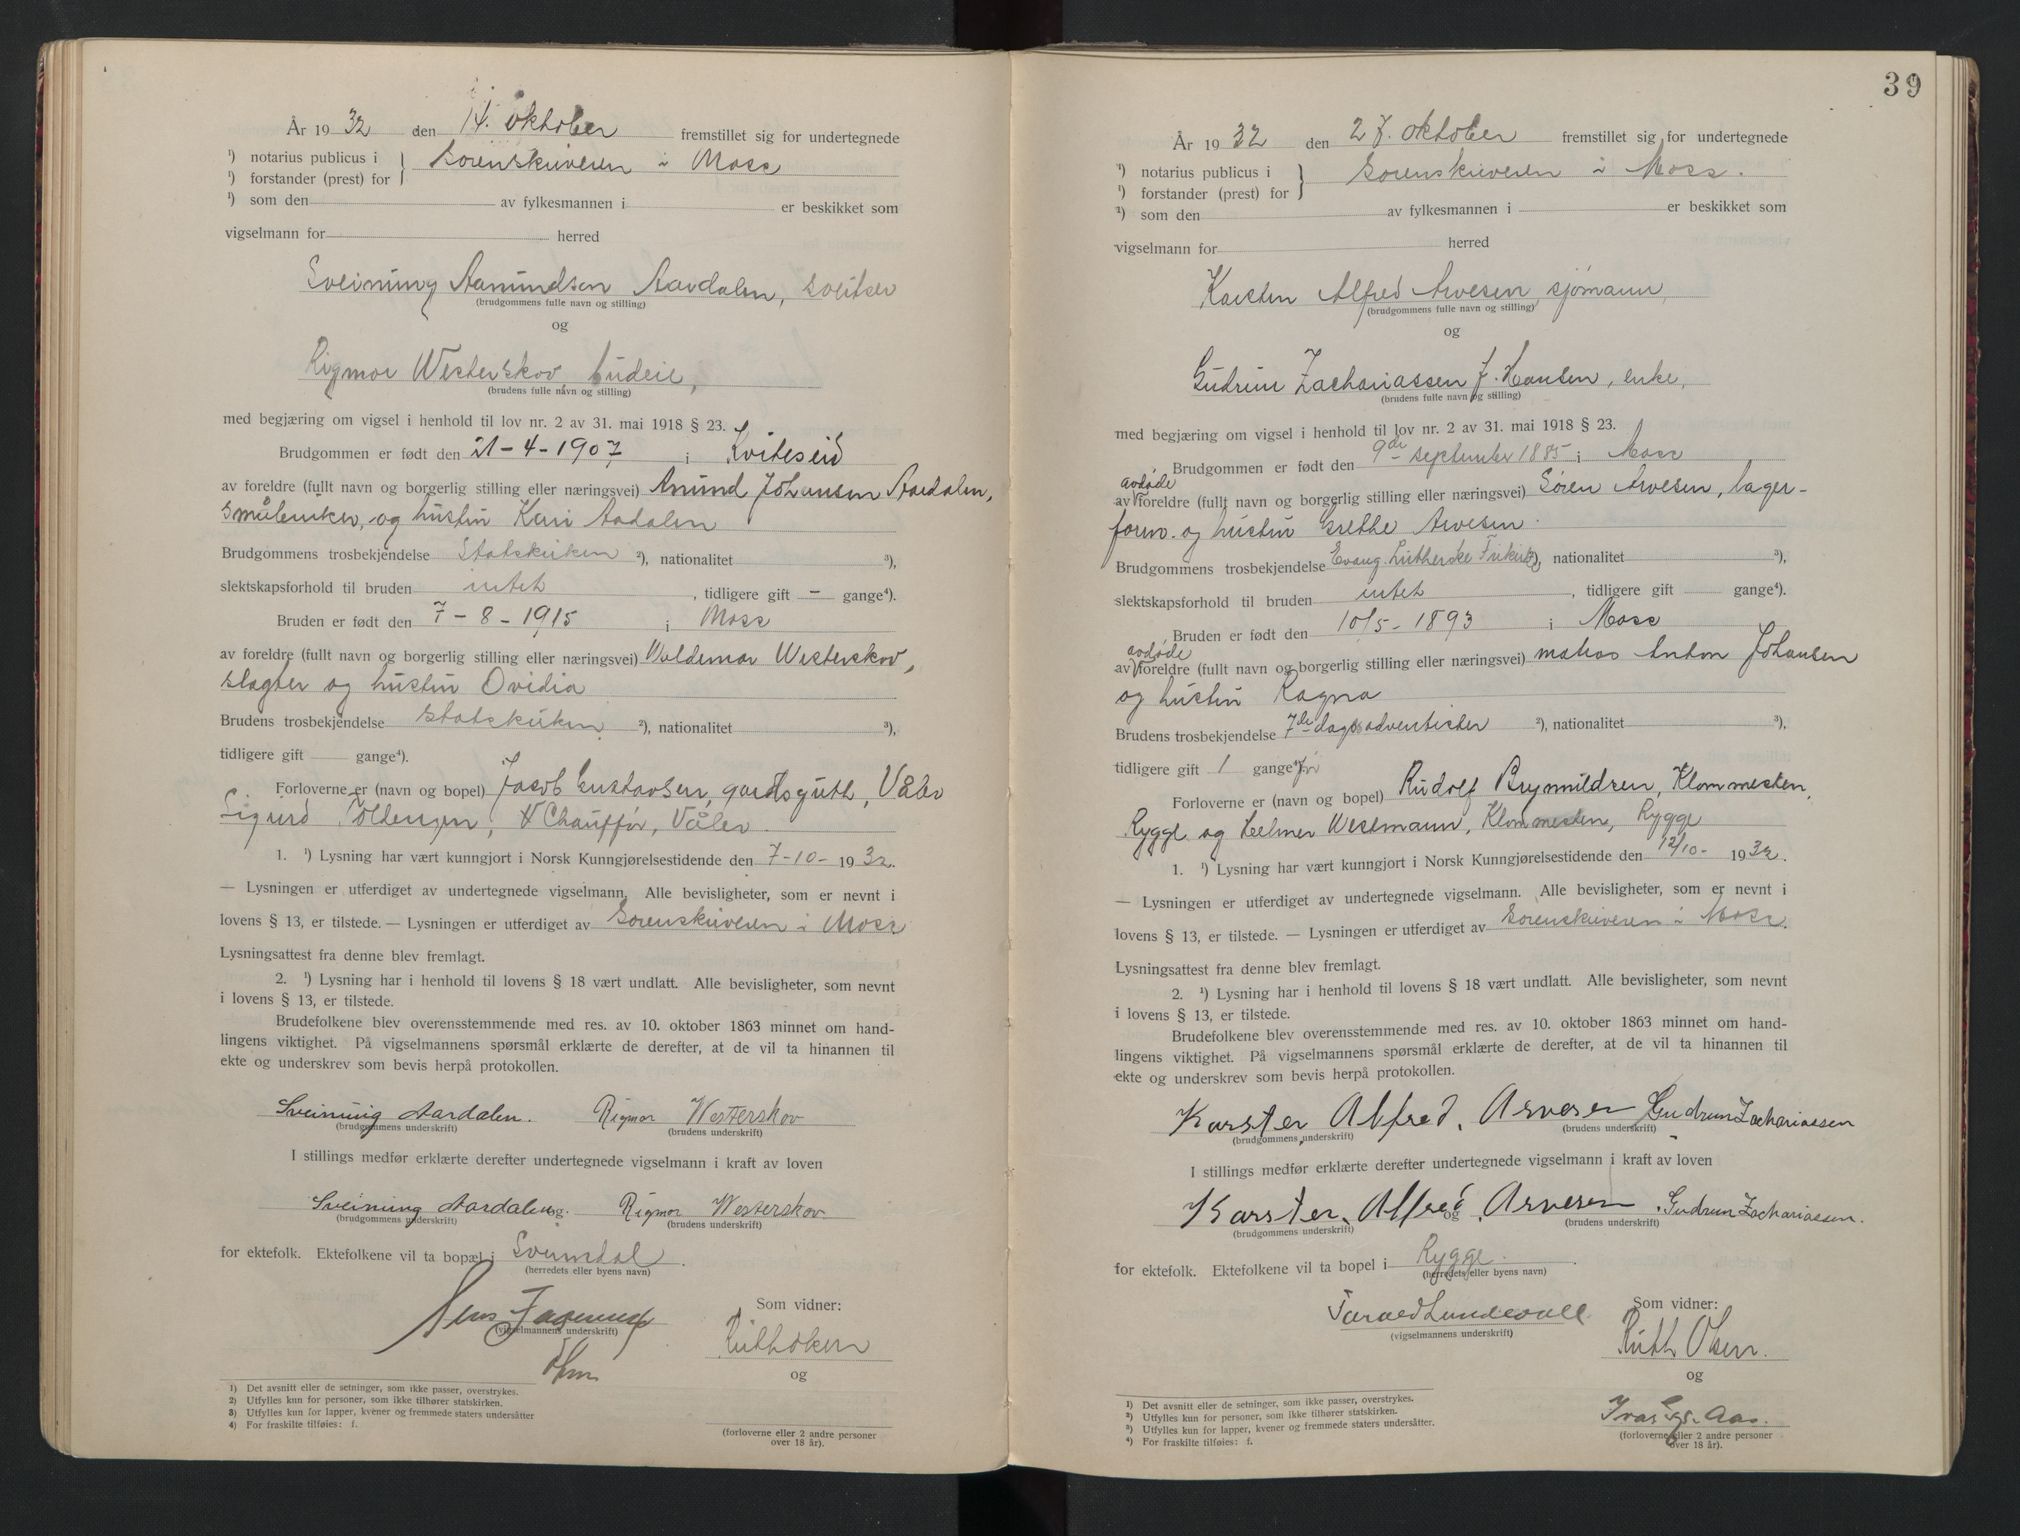 År 1932 den 14. oktober fremstillet sig for undertegnede
¹) notarius publicus i } Sorenskriveren i Moss
¹) forstander (prest) for
¹) som den av fylkesmannen i er beskikket som
vigselmann for herred
Sveinung Aamundsen Aardalen, sveitser
(brudgommens fulle navn og stilling)
og
Rigmor Westerskov budeie,
(brudens fulle navn og stilling)
med begjæring om vigsel i henhold til lov nr. 2 av 31. mai 1918 § 23.
Brudgommen er født den 21-4-1907 i Kviteseid
av foreldre (fullt navn og borgerlig stilling eller næringsvei) Amund Johansen Aardalen,
småbruker, og hustru Kari Aadalen
Brudgommens trosbekjendelse Statskirken ²), nationalitet ³),
slektskapsforhold til bruden intet, tidligere gift – gange⁴).
Bruden er født den 7-8-1915 i Moss
av foreldre (fullt navn og borgerlig stilling eller næringsvei) Valdemar Westerskov,
slagter og hustru Ovidia
Brudens trosbekjendelse Statskirken ²), nationalitet ³),
tidligere gift gange⁴).
Forloverne er (navn og bopel) Jacob Gustavsen, gardsgutt, Våler
Sigurd Chauffør, Våler.
1. ¹) Lysning har vært kunngjort i Norsk Kunngjørelsestidende den 7-10-1932.
— Lysningen er utferdiget av undertegnede vigselmann. Alle bevisligheter, som er nevnt i
lovens § 13, er tilstede. — Lysningen er utferdiget av Sorenskriveren i Moss
Lysningsattest fra denne blev fremlagt.
2. ¹) Lysning har i henhold til lovens § 18 vært undlatt. Alle bevisligheter, som nevnt
i lovens § 13, er tilstede.
Brudefolkene blev overensstemmende med res. av 10. oktober 1863 minnet om hand-
lingens viktighet. På vigselmannens spørsmål erklærte de derefter, at de vil ta hinannen til
ekte og underskrev som bevis herpå protokollen.
Sveinung Aardalen. Rigmor Westerskov
(brudgommens underskrift) (brudens underskrift)
I stillings medfør erklærte derefter undertegnede vigselmann i kraft av loven
Sveinung Aardalen og Rigmor Westerskov.
(brudgommens underskrift) (brudens underskrift)
for ektefolk. Ektefolkene vil ta bopæl i Svinndal.
(herredets eller byens navn)
Som vidner:
(vigselmannens underskrift)
Ruth Olsen
og
¹) Det avsnitt eller de setninger, som ikke passer, overstrykes.
²) Utfylles kun for personer, som ikke tilhører statskirken.
³) Utfylles kun for lapper, kvener og fremmede staters undersåtter
⁴) For fraskilte tilføies: f.
(forloverne eller 2 andre personer
over 18 år).
39
År 1932 den 27. oktober fremstillet sig for undertegnede
¹) notarius publicus i } Sorenskriveren i Moss.
¹) forstander (prest) for
¹) som den av fylkesmannen i er beskikket som
vigselmann for herred
Karsten Alfred Arvesen sjømann,
(brudgommens fulle navn og stilling)
og
Gudrun Zachariassen f. Hansen, enke,
(brudens fulle navn og stilling)
med begjæring om vigsel i henhold til lov nr. 2 av 31. mai 1918 § 23.
Brudgommen er født den 9de september 1885 i Moss
avdøde
av foreldre (fullt navn og borgerlig stilling eller næringsvei) Søren Arvesen, lager-
form. og hustru Grethe Arvesen.
Brudgommens trosbekjendelse Evang. Lutherske Frikirke ²), nationalitet ³),
slektskapsforhold til bruden intet, tidligere gift gange⁴).
Bruden er født den 10/5-1893 i Moss
avdøde
av foreldre (fullt navn og borgerlig stilling eller næringsvei) matros Anton Johansen
og hustru Ragna
Brudens trosbekjendelse 7de dags adventister ²), nationalitet ³),
tidligere gift 1 gange⁴).
Forloverne er (navn og bopel) Rudolf Brynmildsen, Klommesten,
Rygge og Helmer Westmann, Klommesten, Rygge
1. ¹) Lysning har vært kunngjort i Norsk Kunngjørelsestidende den 12/10-1932.
— Lysningen er utferdiget av undertegnede vigselmann. Alle bevisligheter, som er nevnt i
lovens § 13, er tilstede. — Lysningen er utferdiget av Sorenskriveren i Moss.
Lysningsattest fra denne blev fremlagt.
2. ¹) Lysning har i henhold til lovens § 18 vært undlatt. Alle bevisligheter, som nevnt
i lovens § 13, er tilstede.
Brudefolkene blev overensstemmende med res. av 10. oktober 1863 minnet om hand-
lingens viktighet. På vigselmannens spørsmål erklærte de derefter, at de vil ta hinannen til
ekte og underskrev som bevis herpå protokollen.
Karsten Alfred. Arvesen Gudrun Zachariassen
(brudgommens underskrift) (brudens underskrift)
I stillings medfør erklærte derefter undertegnede vigselmann i kraft av loven
Karsten Alfred og Arvesen Gudrun Zachariassen.
(brudgommens underskrift) (brudens underskrift)
for ektefolk. Ektefolkene vil ta bopel i Rygge.
(herredets eller byens navn)
Som vidner:
Tarald Lundevall
(vigselmannens underskrift)
Ruth Olsen.
og
Aas.
¹) Det avsnitt eller de setninger, som ikke passer, overstrykes.
²) Utfylles kun for personer, som ikke tilhører statskirken.
³) Utfylles kun for lapper, kvener og fremmede staters undersåtter.
⁴) For fraskilte tilføies: f.
(forloverne eller 2 andre personer
over 18 år).